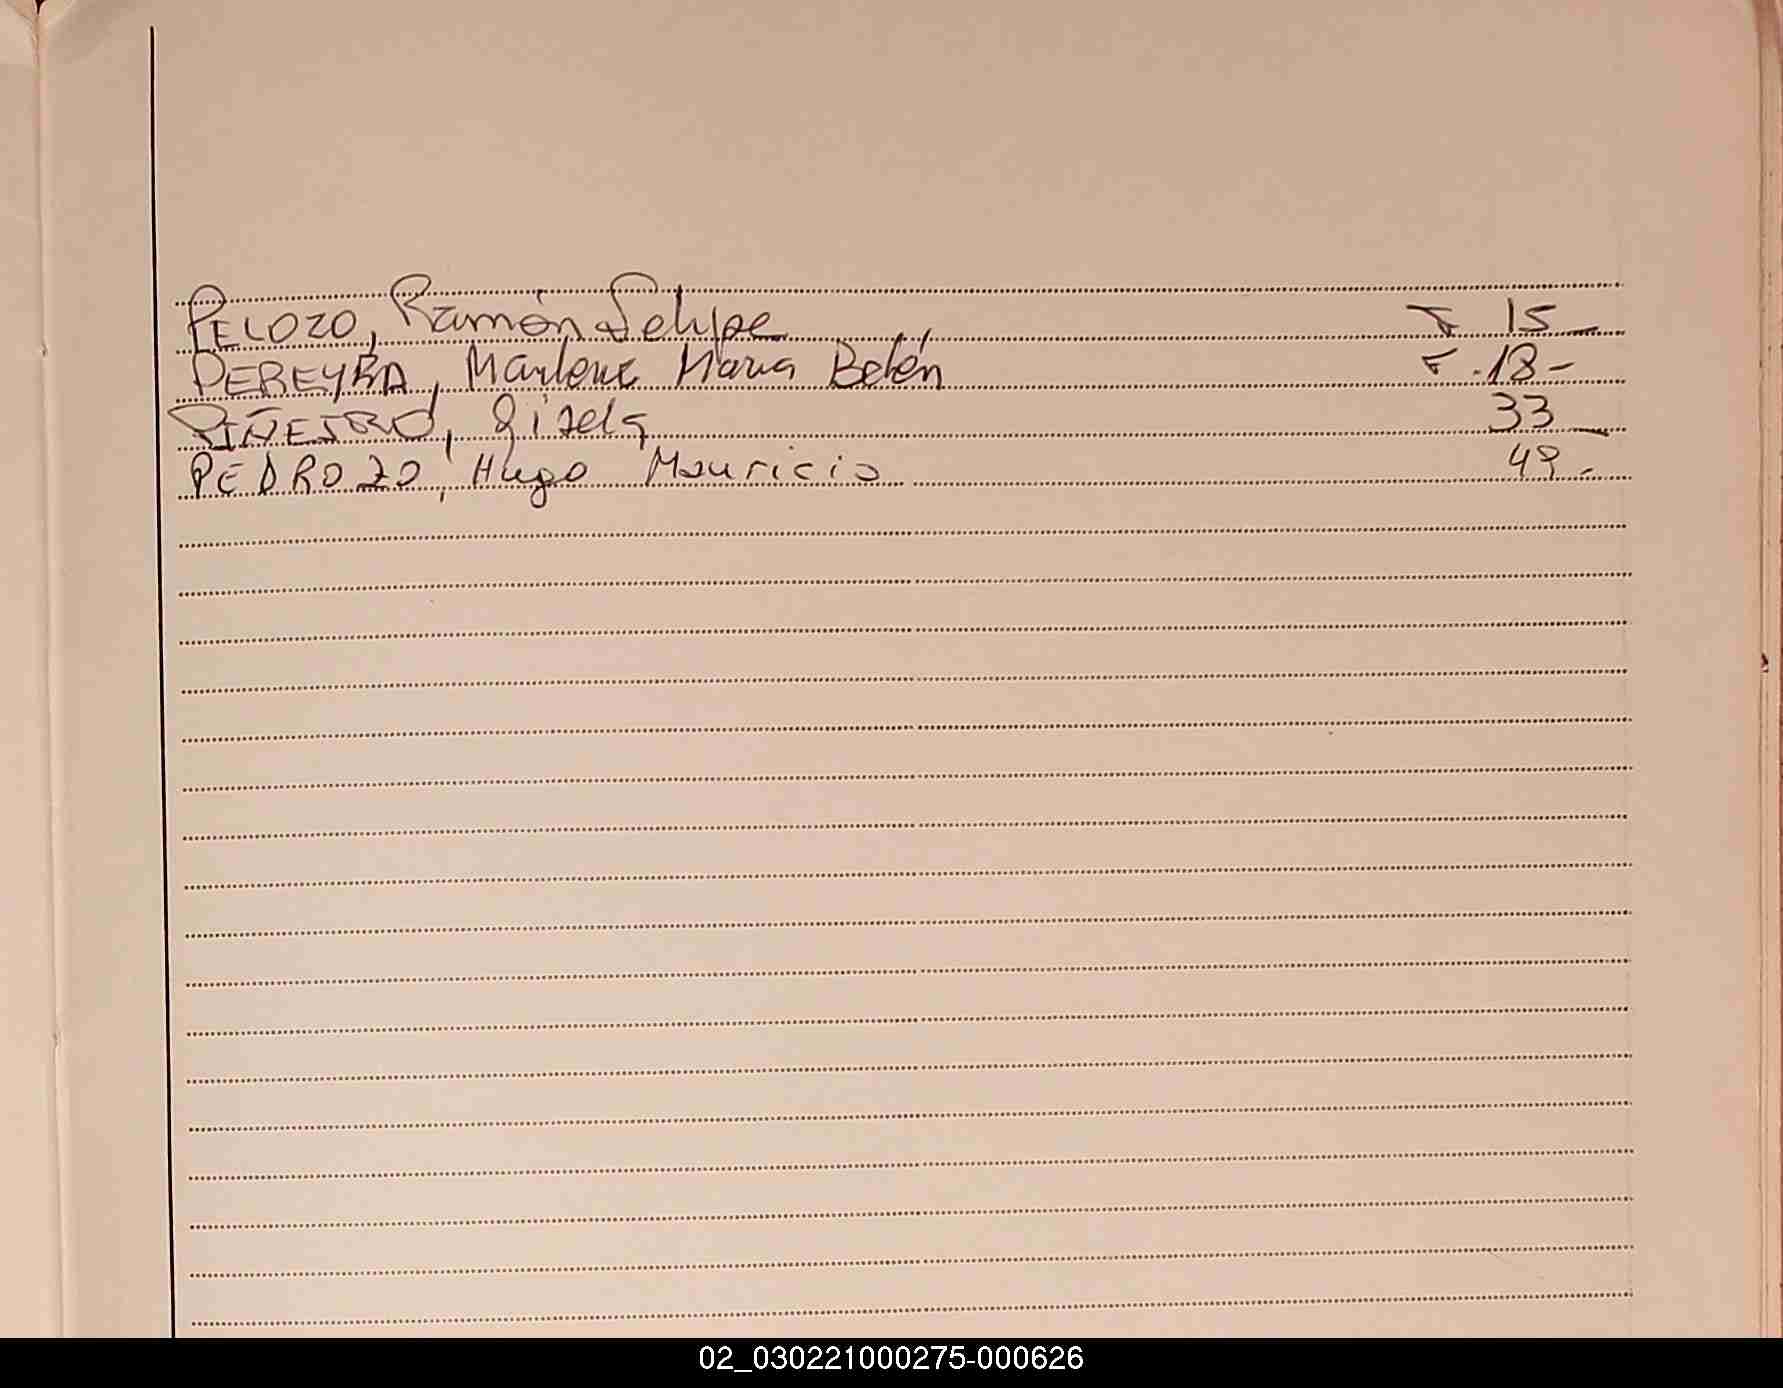 PELOZO, Ramón Felipe F 15
PEREYRA, Marlene Maria Belén F. 18-
PIÑEIRO, Gisela 33
PEDROZO, Hugo Mauricio 49-
02_030221000275-000626